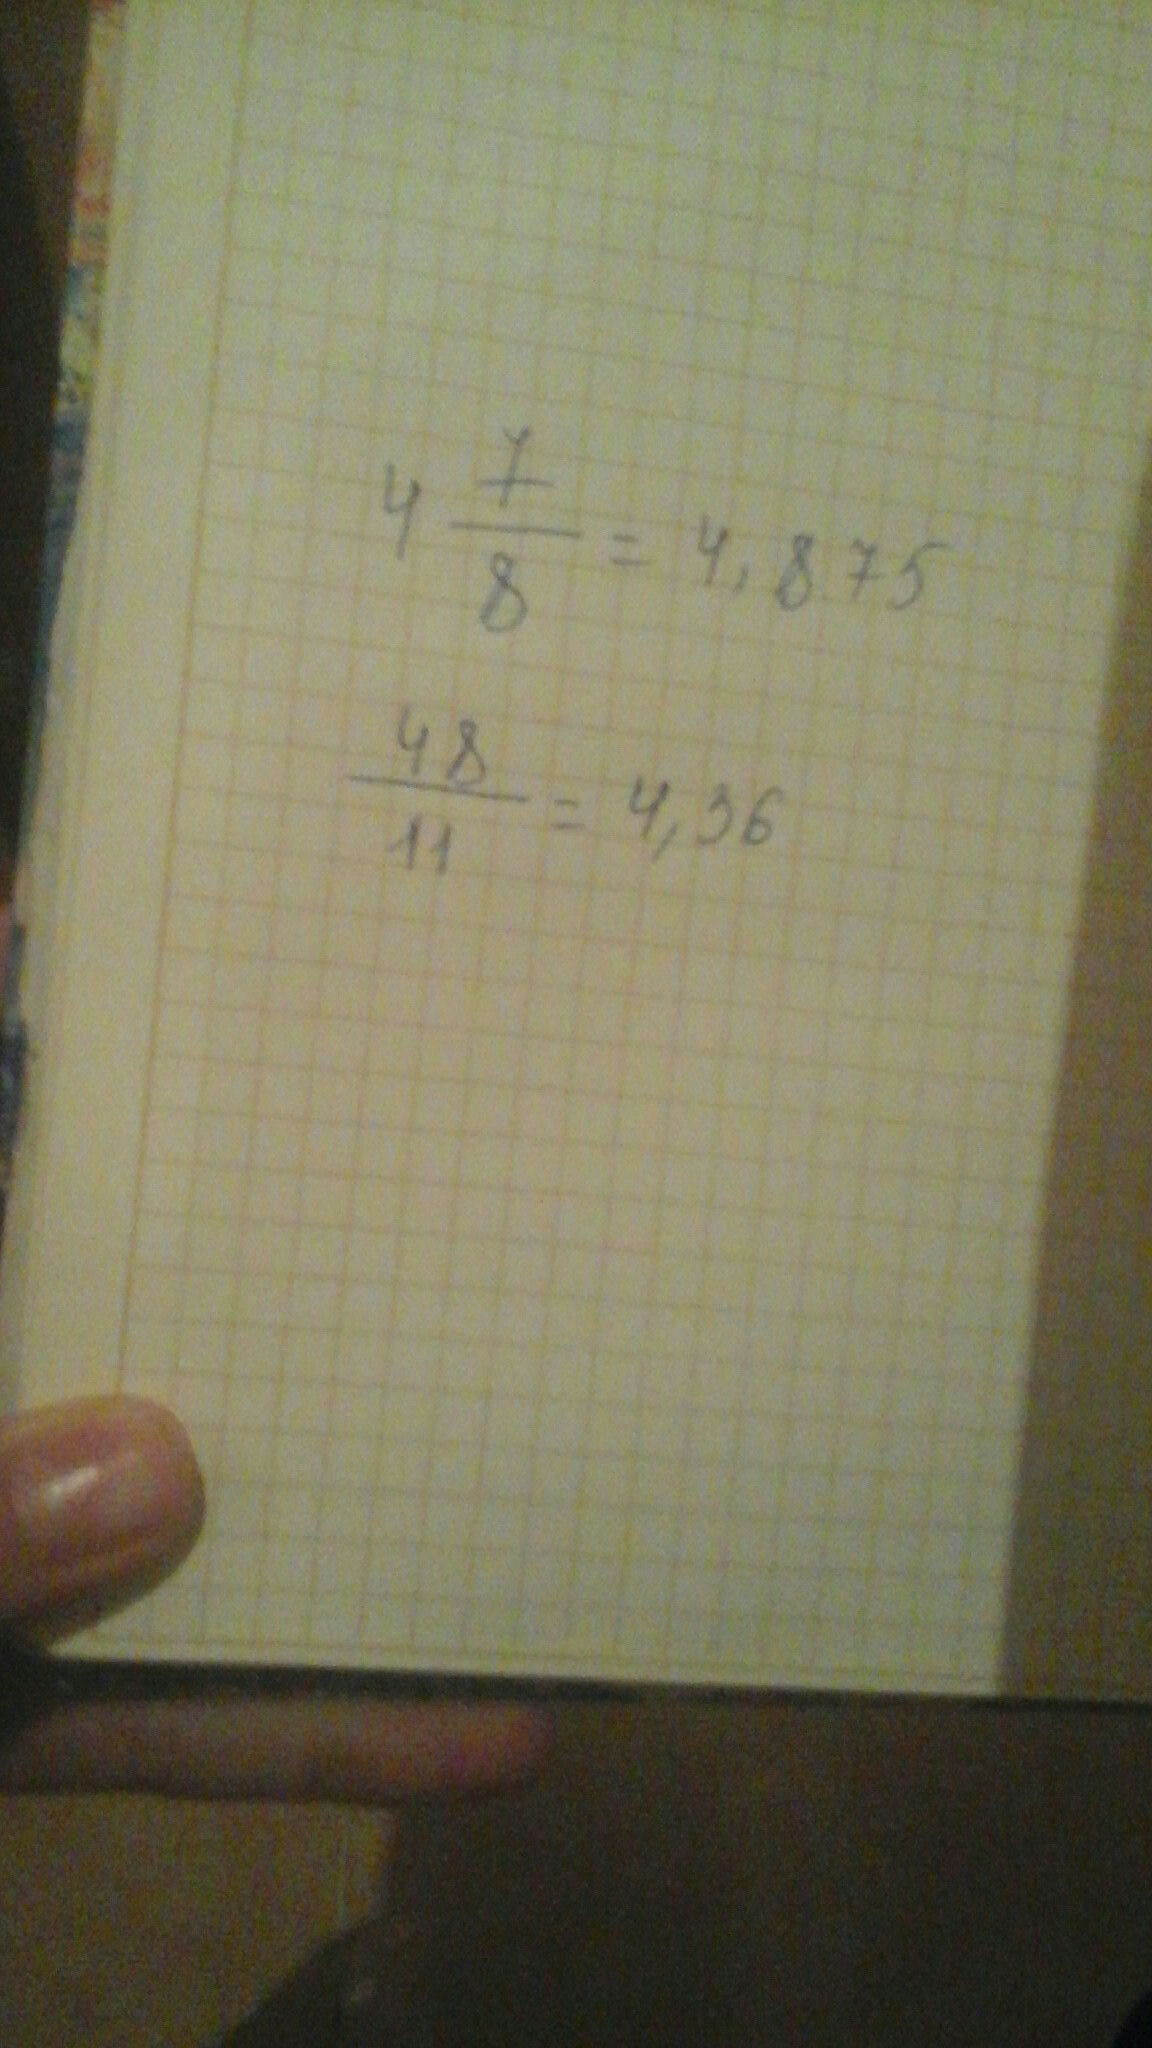 4 7/8 = 4,875
48/11 = 4,36